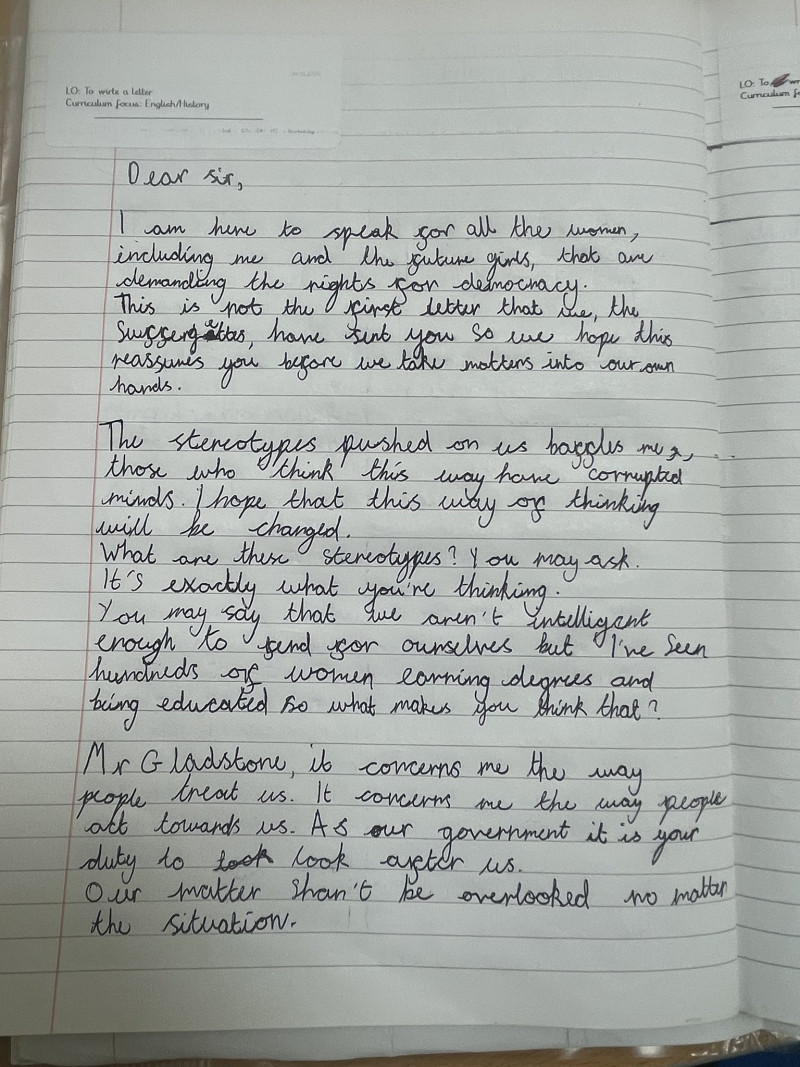 LO: To wirte a letter
Curriculum focus: English/History
LO: To wr
Curriculum fo
Dear sir,
I am here to speak for all the women,
including me and the future girls, that are
demanding the rights for democracy.
This is not the first letter that we, the
Suffergettes, have sent you so we hope this
reassures you before we take matters into our own
hands.
The stereotypes pushed on us baffles me,
those who think this way have corrupted
minds. I hope that this way of thinking
will be changed.
What are these stereotypes? You may ask.
It's exactly what you're thinking.
You may say that we aren't intelligent
enough to fend for ourselves but I've seen
hundreds of women earning degrees and
being educated so what makes you think that?
Mr Gladstone, it concerns me the way
people treat us. It concerns me the way people
act towards us. As our government it is your
duty to look after us.
Our matter shan't be overlooked no matter
the situation.